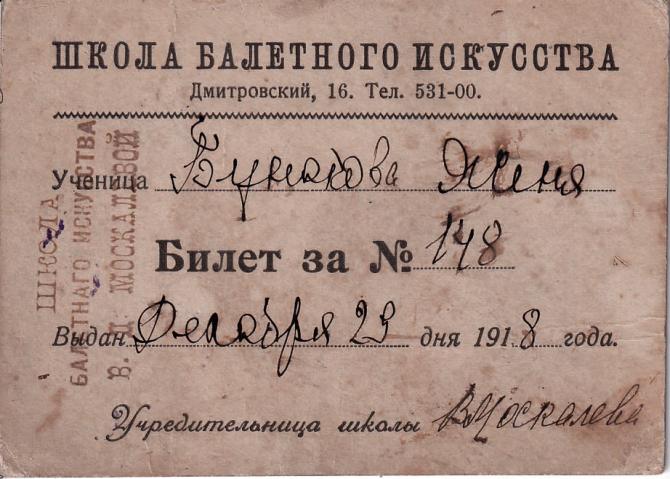 ШКОЛА БАЛЕТНОГО ИСКУССТВА
Дмитровский, 16. Тел. 531-00.
Ученица Бунакова Женя
Билет за № 148
Выдан Декабря 29 дня 1918 года.
Учредительница школы ВМоскалева
ШКОЛА
БАЛЕТНАГО ИСКУССТВА
В. МОСКАЛЕВОЙ